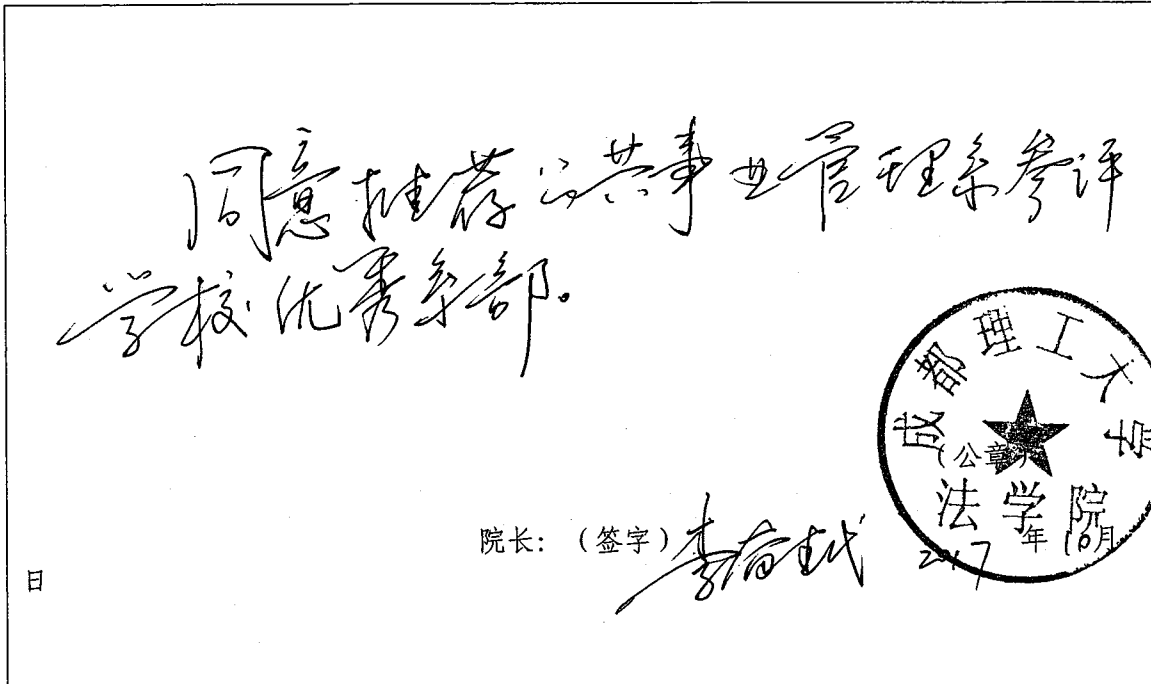 同意推荐公共事业管理系参评
学校优秀系部。
成都理工大学
(公章)
法学院
院长：（签字）李
2017年10月
日